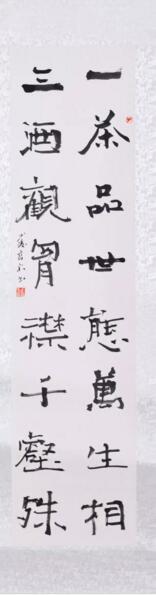 一茶品世態萬生相
三酒觀胃襟千壑殊